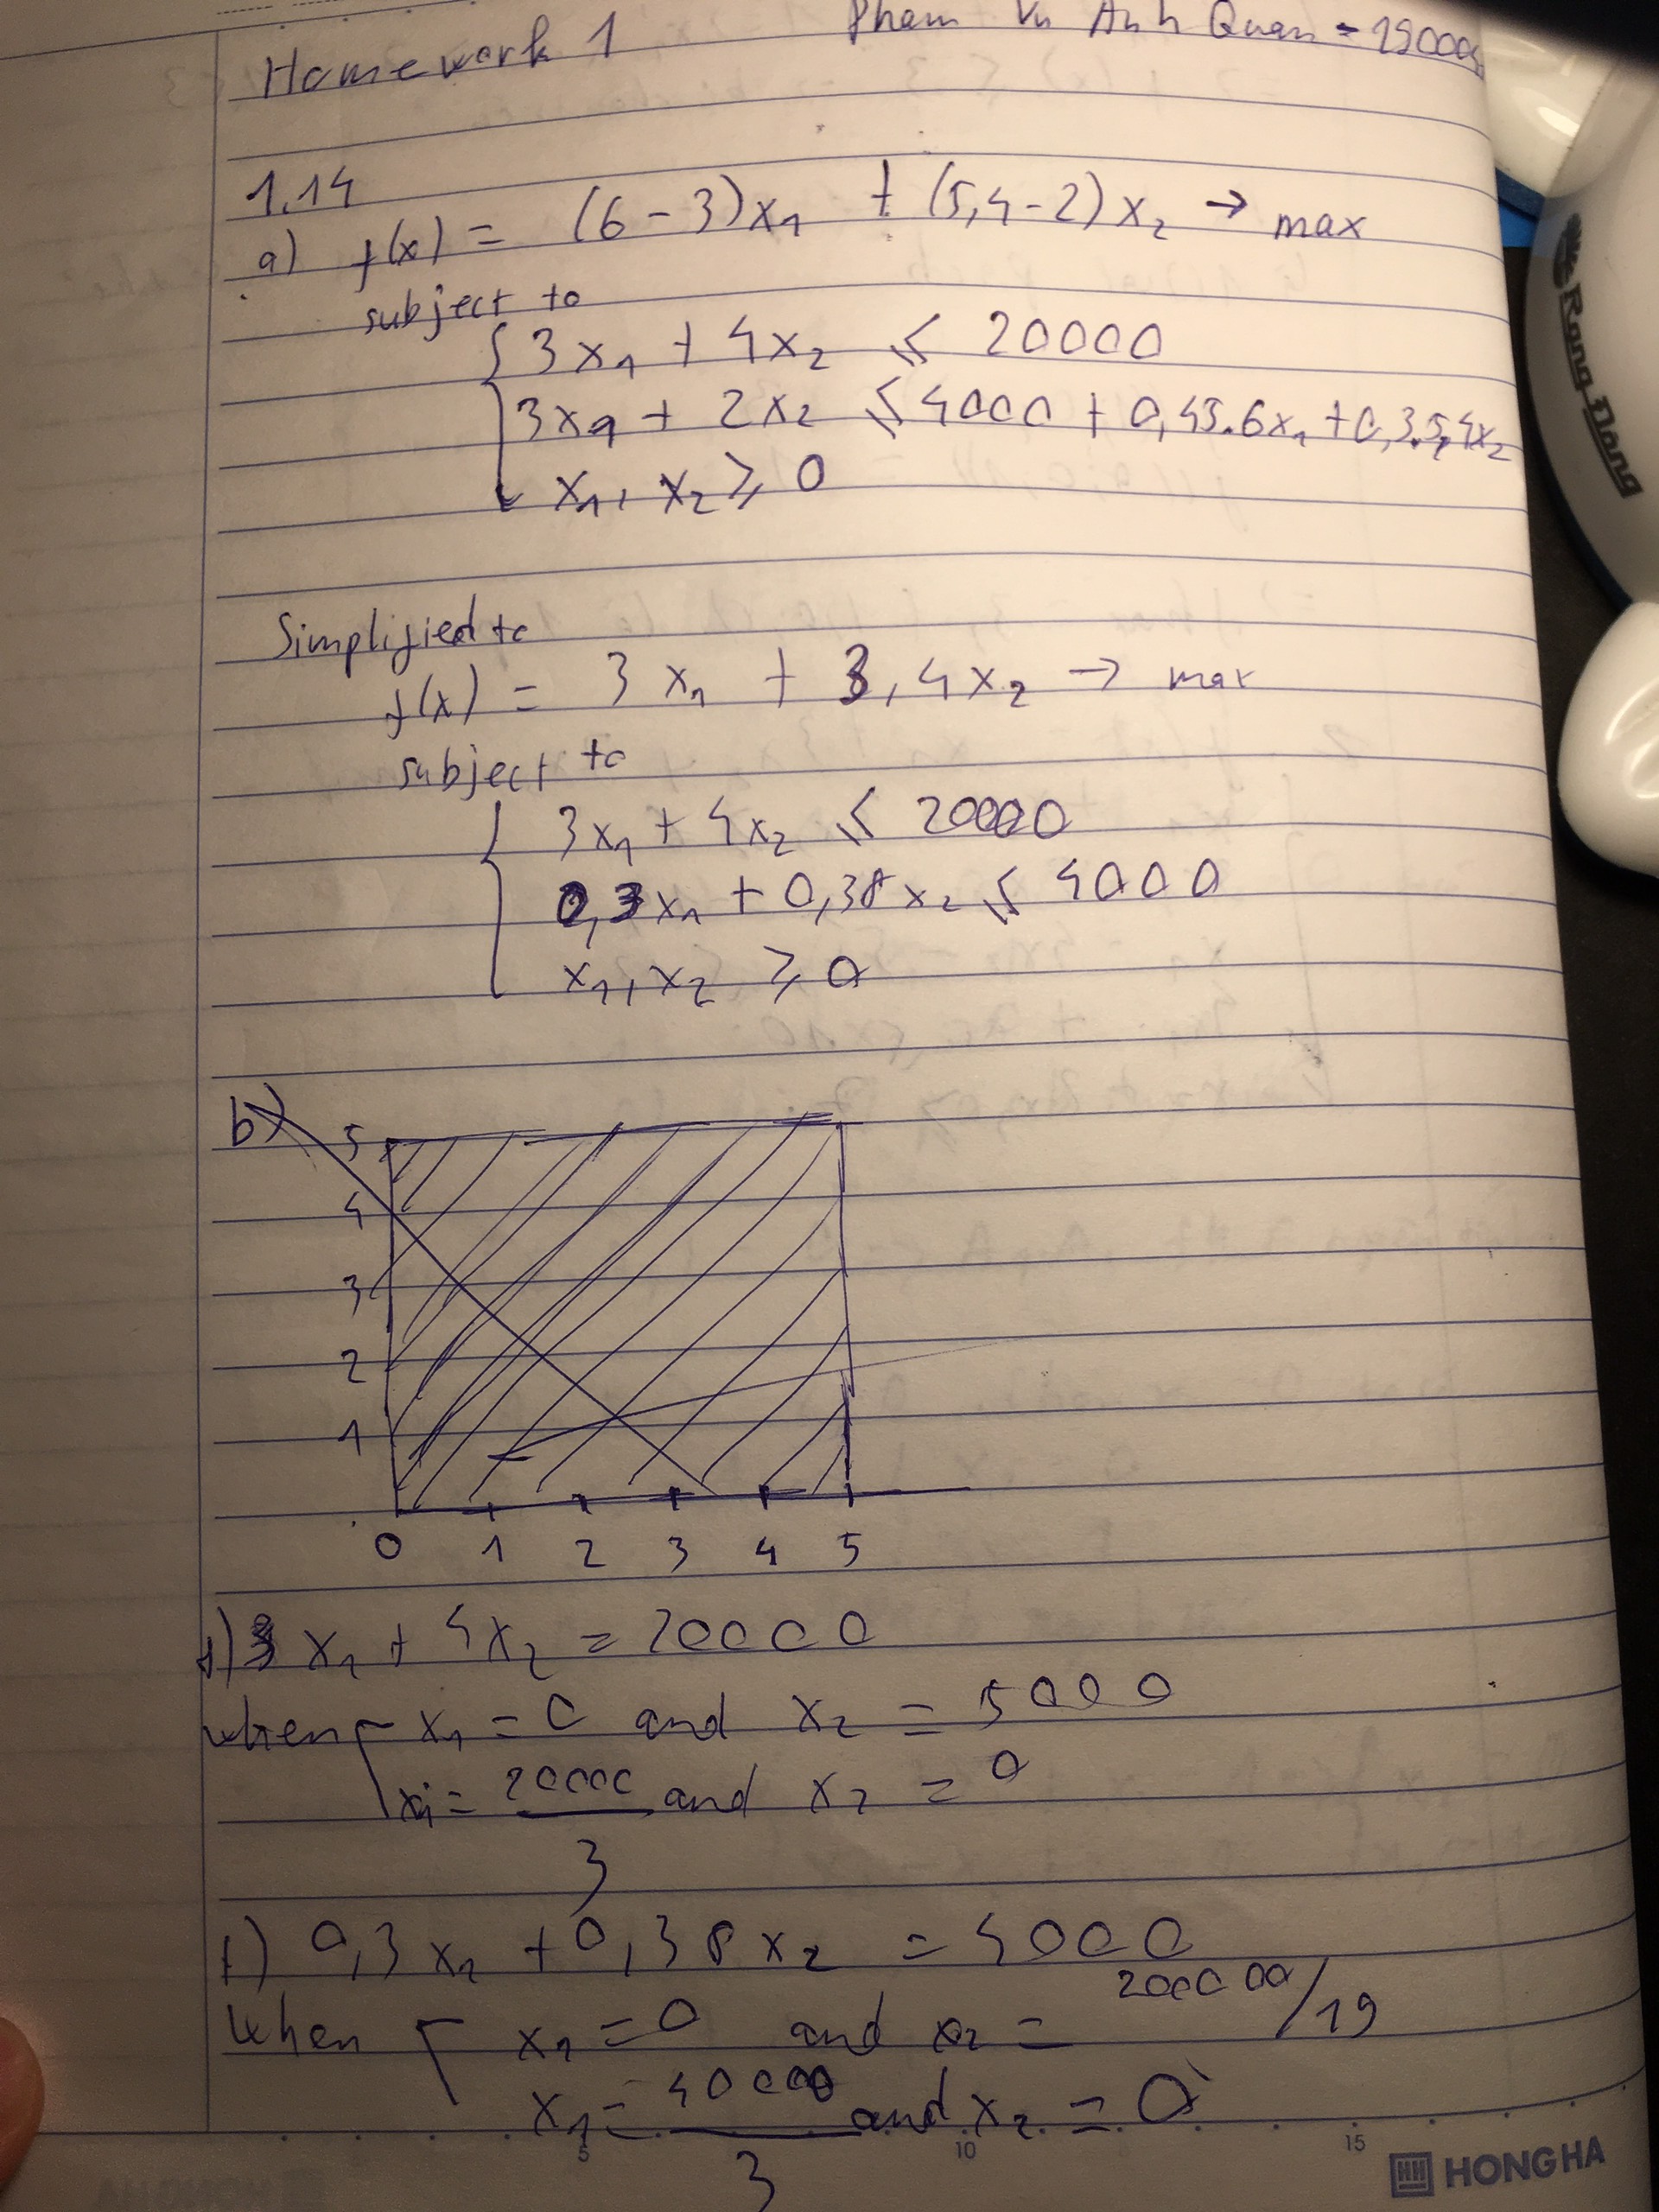 Pham Vu Anh Quan - 19000
Homework 1
1.14
a) f(x) = (6-3)x₁ + (5,4-2)x₂ → max
subject to
3x₁ + 4x₂ ≤ 20000
3x₁ + 2x₂ ≤ 4000 + 0,45.6x₁ + 0,3.5,4x₂
x₁, x₂ ≥ 0
Simplified to
f(x) = 3x₁ + 3,4x₂ → max
subject to
3x₁ + 4x₂ ≤ 20000
0,3x₁ + 0,38x₂ ≤ 4000
x₁, x₂ ≥ 0
b)
5
4
3
2
1
0 1 2 3 4 5
3x₁ + 4x₂ = 20000
when x₁ = 0 and x₂ = 5000
x₁ = 20000/3 and x₂ = 0
+) 0,3x₁ + 0,38x₂ = 4000
when x₁ = 0 and x₂ = 200000/19
x₁ = 40000/3 and x₂ = 0
5 10 15
HH HONG HA
Rang Dong